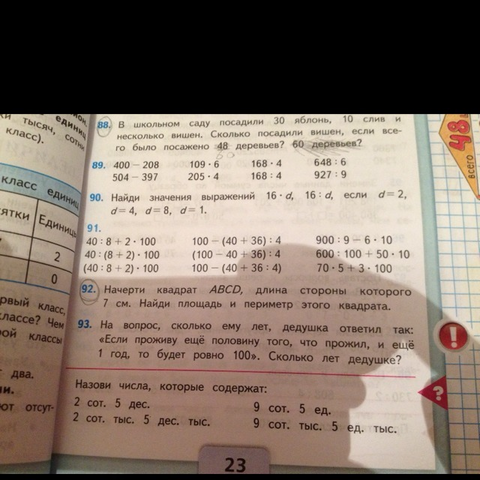 единиц
ки тысяч, сотни
класс).
класс единиц
сятки Единицы
2
0
рвый класс,
классе? Чем
ной классы
т два.
ни.
ют отсут-
88. В школьном саду посадили 30 яблонь, 10 слив и
несколько вишен. Сколько посадили вишен, если все-
го было посажено 48 деревьев? 60 деревьев?
89. 400 − 208 109 · 6 168 · 4 648 : 6
504 − 397 205 · 4 168 : 4 927 : 9
90. Найди значения выражений 16 · d, 16 : d, если d = 2,
d = 4, d = 8, d = 1.
91.
40 : 8 + 2 · 100 100 − (40 + 36) : 4 900 : 9 − 6 · 10
40 : (8 + 2) · 100 (100 − 40 + 36) : 4 600 : 100 + 50 · 10
(40 : 8 + 2) · 100 100 − (40 + 36 : 4) 70 · 5 + 3 · 100
92. Начерти квадрат ABCD, длина стороны которого
7 см. Найди площадь и периметр этого квадрата.
93. На вопрос, сколько ему лет, дедушка ответил так:
«Если проживу ещё половину того, что прожил, и ещё
1 год, то будет ровно 100». Сколько лет дедушке?
Назови числа, которые содержат:
2 сот. 5 дес. 9 сот. 5 ед.
2 сот. тыс. 5 дес. тыс. 9 сот. тыс. 5 ед. тыс.
23
всего 48
!
?